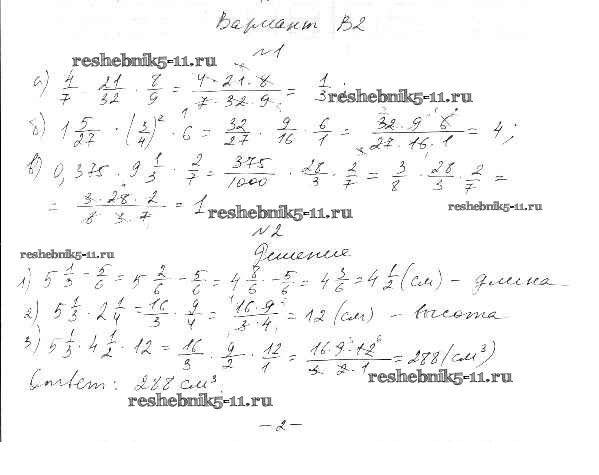 Вариант В2
№1
reshebnik5-11.ru
а) 4/7 · 21/32 · 8/9 = 4·21·8/7·32·9 = 1/3;
reshebnik5-11.ru
б) 1 5/27 · (3/4)² · 6 = 32/27 · 9/16 · 6/1 = 32·9·6/27·16·1 = 4;
в) 0,375 · 9 1/3 · 2/7 = 375/1000 · 28/3 · 2/7 = 3/8 · 28/3 · 2/7 =
= 3·28·2/8·3·7 = 1
reshebnik5-11.ru
reshebnik5-11.ru
№2
reshebnik5-11.ru
Решение
1) 5 1/3 - 5/6 = 5 2/6 - 5/6 = 4 8/6 - 5/6 = 4 3/6 = 4 1/2 (см) - длина
2) 5 1/3 · 2 1/4 = 16/3 · 9/4 = 16·9/3·4 = 12 (см) - высота
3) 5 1/3 · 4 1/2 · 12 = 16/3 · 9/2 · 12/1 = 16·9·12/3·2·1 = 288 (см³)
Ответ: 288 см³.
reshebnik5-11.ru
reshebnik5-11.ru
- 2 -